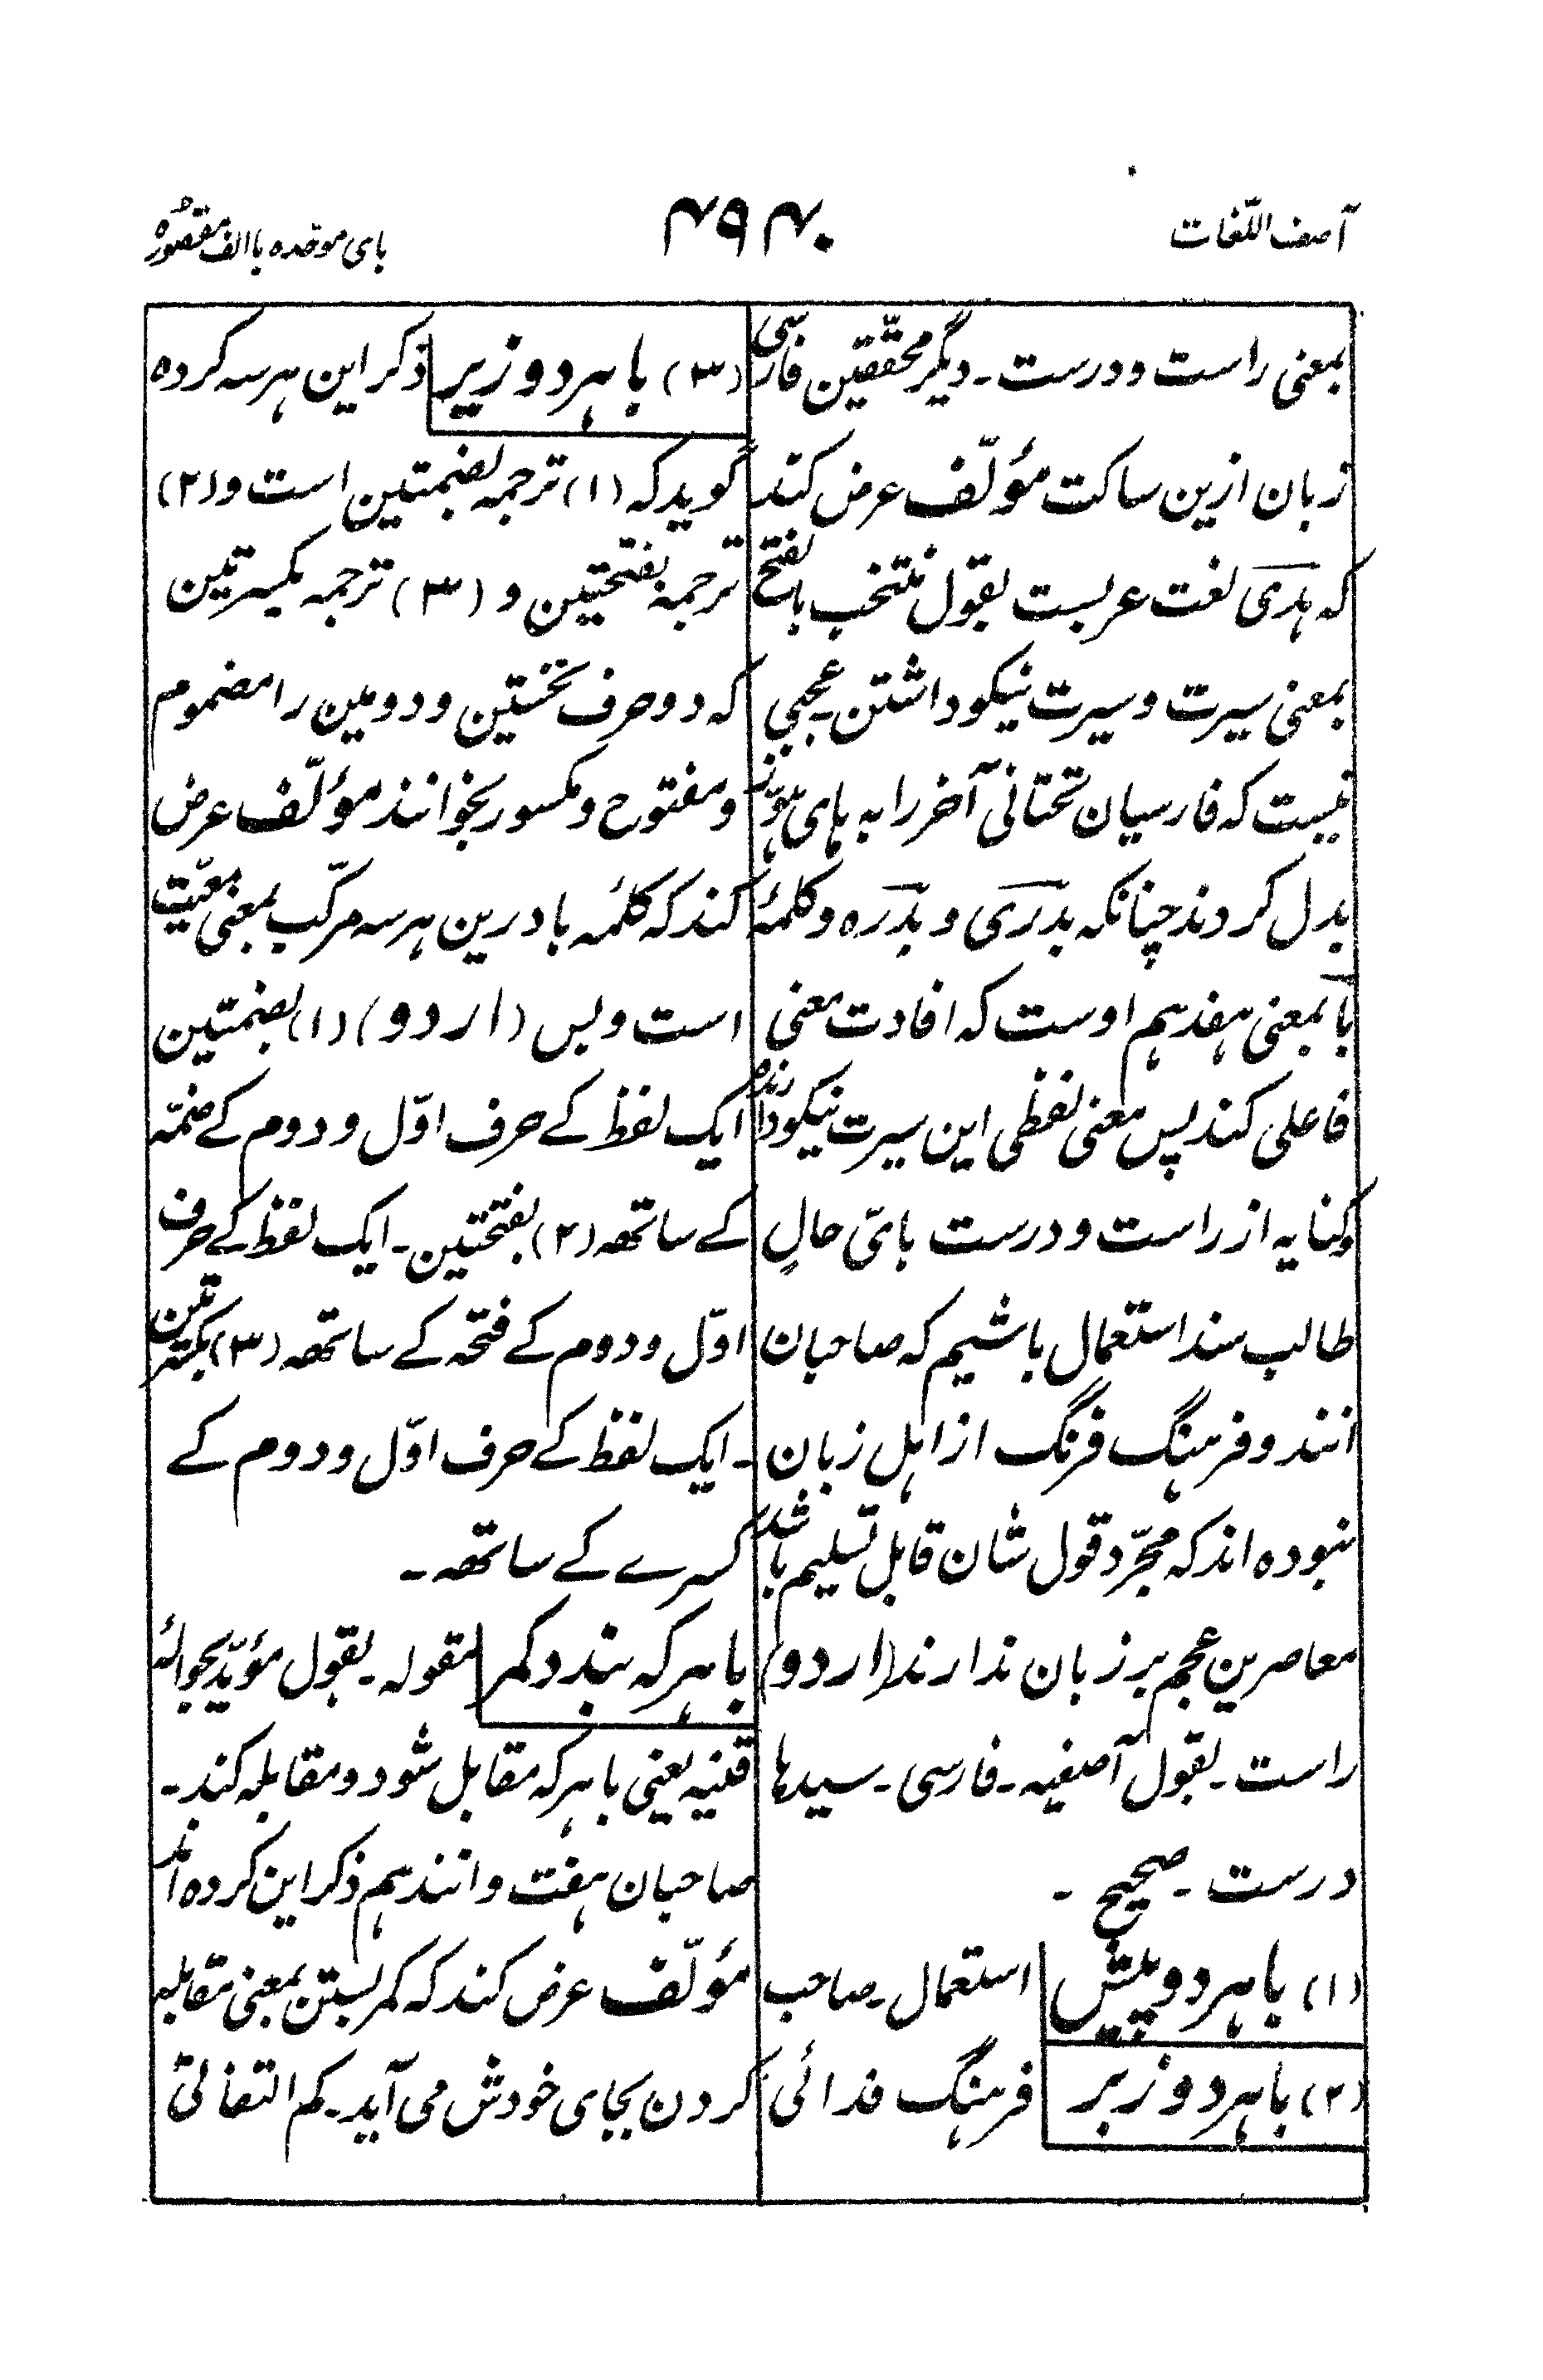 آصف اللّغات
۴۹۴۰
بای موحّده باالف مقصُوره
بمعنی راست و درست ـ دیگر محقّقین فارسی
زبان ازین ساکت مؤلّف عرض کند
که ہَدْی لغت عربیست بقول منتخب بالفتح
بمعنی سیرت و سیرت نیکو داشتن ـ عجبی
نیست که فارسیان تحتانی آخر را به ہای ہوّز
بدل کردند چنانکه بدری و بدره و کلمۂ
با بمعنی ہفدہم اوست که افادت معنی
فاعلی کند پس معنی لفظی این سیرت نیکو دارنده
و کنایه از راست و درست بایّ حالِ
طالب سند استعمال باشیم که صاحبان
انند و فرہنگ فرنگ از اہل زبان
نبوده اند که مجرّد قول شان قابل تسلیم باشد
معاصرین عجم بر زبان ندارند (اردو)
راست ـ بقول آصفیه ـ فارسی ـ سیدہا
درست ـ صحیح ـ
(۱) باہر دو پیش استعمال ـ صاحب
(۲) باہر دو زبر فرہنگ فدائی
(۳) باہر دو زیر ذکر این ہرسه کرده
گوید که (۱) ترجمه بضمتین است و (۲)
ترجمهٔ بفتحتین و (۳) ترجمه بکسرتین
که دو حرف نخستین و دومین را مضموم
و مفتوح و مکسور بخوانند مؤلّف عرض
کند که کلمۂ با درین ہرسه مرکّب بمعنی معیّت
است و بس (اردو) (۱) بضمتین
ایک لفظ کے حرف اوّل و دوم کے ضمّه
کے ساتھ (۲) بفتحتین ـ ایک لفظ کے حرف
اوّل و دوم کے فتحه کے ساتھ (۳) بکسرتین
ـ ایک لفظ کے حرف اوّل و دوم کے
کسرے کے ساتھ ـ
باہرکه بندد کمر مقوله ـ بقول مؤیّد بحوالۂ
قنیه یعنی باہرکه مقابل شود و مقابله کند ـ
صاحبان ہفت و انند ہم ذکر این کرده اند
مؤلّف عرض کند که کمر بستن بمعنی مقابله
کردن بجای خودش می آید ـ کم التفاتیٔ